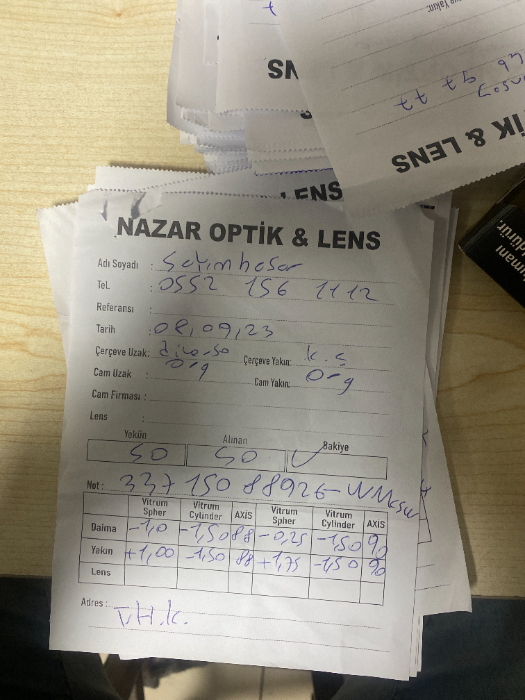 SN
46 97 77
TİK & LENS
LENS
NAZAR OPTİK & LENS
Adı Soyadı : Selimhasar
Tel. : 0552 156 1112
Referansı :
Tarih : 08,09,23
Çerçeve Uzak: Çerçeve Yakın: K.Ç
Cam Uzak : Org Cam Yakın: Org
Cam Firması :
Lens :
Yekün Alınan Bakiye
50 50
Not : 337 150 88926-
Vitrum Spher Vitrum Cylinder AXİS Vitrum Spher Vitrum Cylinder AXİS
Daima -1,0 -1,50 88 -0,25 -1,50 90
Yakın +1,00 -1,50 88 +1,75 -1,50 90
Lens
Adres : V.H.K.